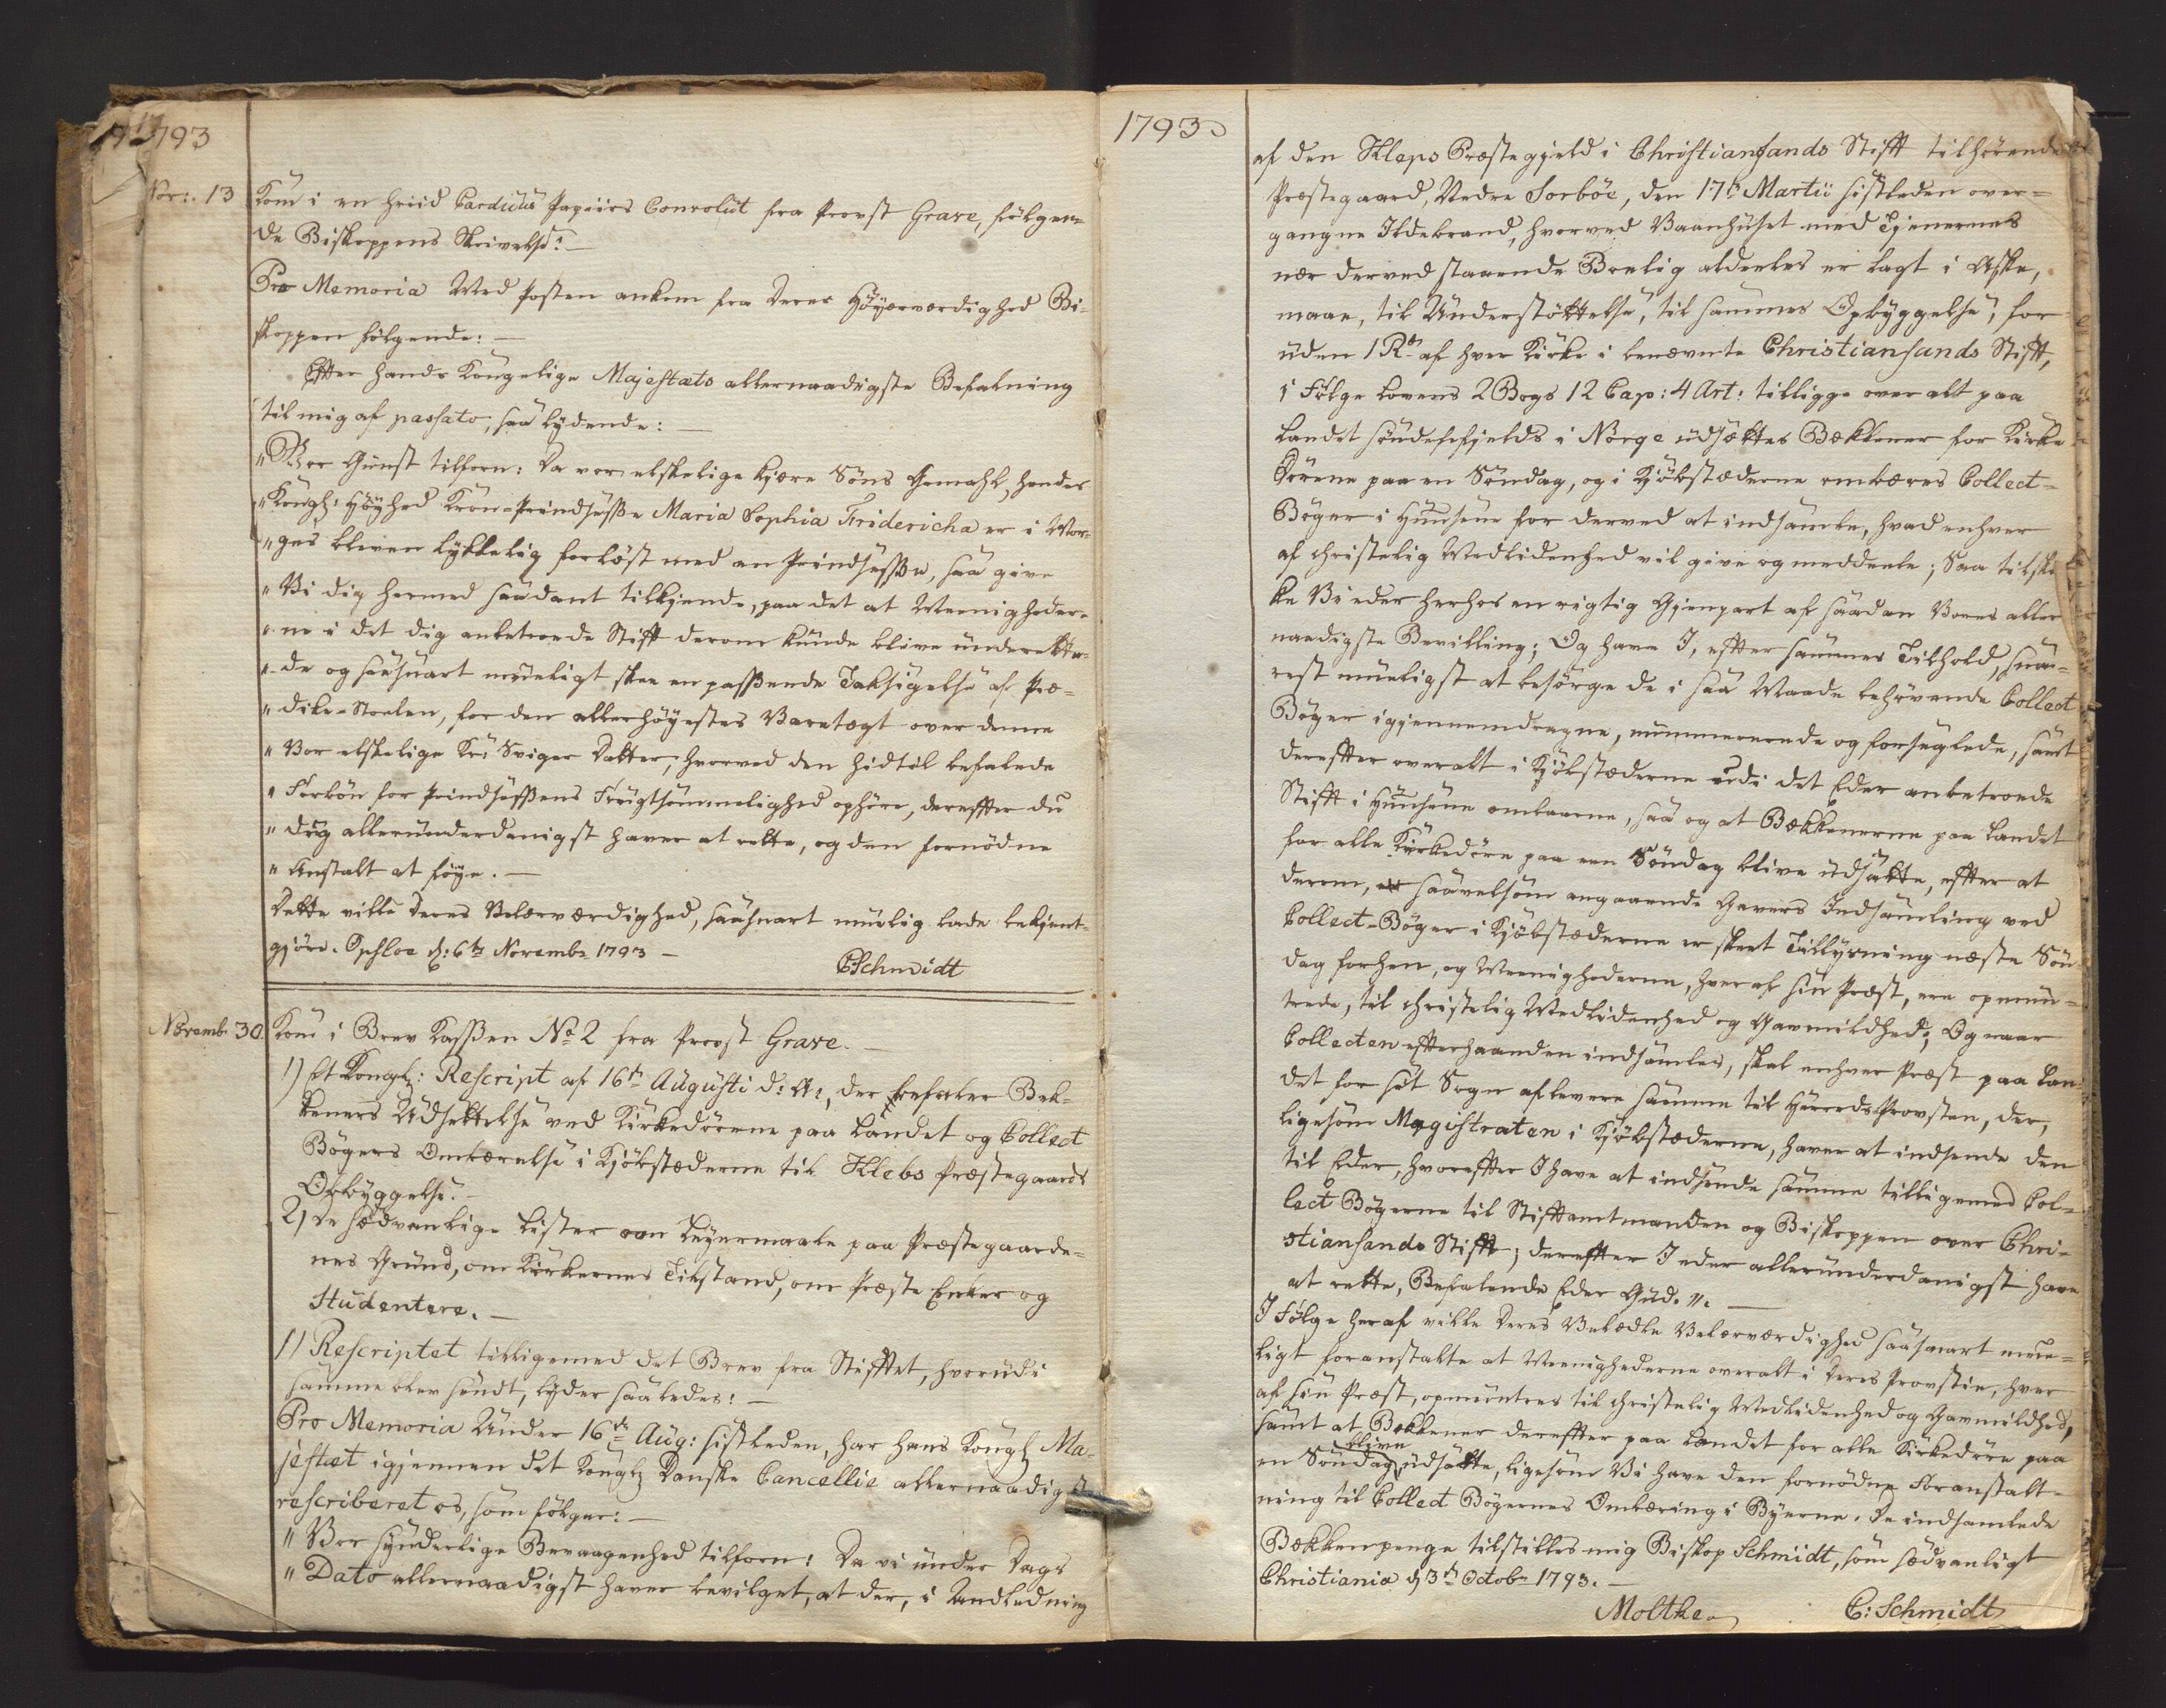 1793
Nov: 13
Kom i en hviid Carduus Papiirs Convolut fra Provst Grave, følgen-
de Biskoppens Skrivelse: —
Pro Memoria Med Posten ankom fra Deres Høyærværdighed Bi-
skoppen følgende: —
Efter Hands Kongelige Majestæts allernaadigste Befalning
til mig af passato, saa lydende: —
" Vor Gunst tilforn: Da vor elskelige kjære Søns Gemahl, Hendes
" Kongl: Høyhed Kron-Prindsesse Maria Sophia Fridericha er i Mor-
" ges bleven lykkelig forløst med en Prindsesse, saa give
" Vi dig hermed saadant tilkjende, paa det at Meenigheder-
" ne i det dig anbetroede Stift derom kunde blive underrette-
" de og saasnart mueligt skee en passende Taksigelse af Præ-
" dike-Stoelen, for den allerhøyestes Varetægt over denne
" Vor elskelige Kr: Sviger Datter, hvorved den hidtil befalede
" Forbøn for Prindsessens Frugtsommelighed ophøre, derefter du
" dig allerunderdanigst haver at rette, og den fornødne
" Anstalt at føye. —
Dette ville Deres Velærværdighed, saasnart muelig lade bekjent-
gjøre. Opsloe d: 6te Novembr 1793 —
C: Schmidt
Novemb: 30.
Kom i Brev Kassen No 2 fra Provst Grave. —
1) Et Kongl: Rescript af 16de Augusti d: A:, der befaler Bek-
keners Udsettelse ved Kirkedørene paa Landet og Collect
Bøgers Ombærelse i Kjøbstæderne til Klebs Præstegaards
Opbyggelse. —
2) De sædvanlige Lister om Leyermaale paa Præstegaarde-
nes Grund, om Kirkernes Tilstand, om Præste Enker og
Studentere. —
1) Rescriptet tilligemed det Brev fra Stifftet, hvorudi
samme blev sendt, lyder saaledes: —
Pro Memoria Under 16de Aug: sistleden, har Hans Kongl Ma-
jestæt igjennem det Kongl Danske Cancellie allernaadigst
rescriberet os, som følger: —
" Vor synderlige Bevaagenhed tilforn: Da vi under Dags
" Dato allernaadigst haver bevilget, at der, i Andledning
1793
af den Kleps Præstegjeld i Christiansands Stift tilhørende
Præstegaard, Nedre Sorbøe, den 17de Martii sistleden over-
gangne Ildebrand, hvorved Vaanhuset med Tjenernes
nær derved staaende Boelig aldeeles er lagt i Aske,
maae, til Understøttelse, til sammes Opbyggelse, for-
uden 1 Rd af hver Kirke i benævnte Christiansands Stift,
i Følge Lovens 2 Bogs 12 Cap: 4 Art: tilligge over alt paa
Landet søndenfields i Norge udsættes Bekkener for Kirke
Dørene paa en Søndag, og i Kjøbstæderne ombæres Collect-
Bøger i Huusene for derved at indsamle, hvad enhver
af christelig Medlidenhed vil give og meddeele; Saa tilskik-
ke Vi eder herhos en rigtig Gjenpart af saadan Vores aller
naadigste Bevilling; Og have I, efter sammes Tilhold, snar-
rest mueligst at besørge de i saa Maade behøvende Collect
Bøger igjennemdragne, nummererede og forseglede, samt
derefter overalt i Kjøbstæderne udi det Eder anbetroede
Stift i Huusene ombaarne, saa og at Bækkenerne paa Landet
for alle Kirkedøre paa een Søndag blive udsatte, efter at
derom, saavelsom angaaende Gavers Indsamling ved
Collect-Bøger i Kjøbstæderne er skeet Tillysning næste Søn-
dag forhen, og Meenighederne, hver af sin Præst, ere opmun-
trede, til christelig Medlidenhed og Gavmildhed; Og naar
Collecten efterhaanden indsamles, skal enhver Præst paa Lan-
det for sit Sogn aflevere samme til Herreds-Provsten, der,
ligesom Magistraten i Kjøbstæderne, haver at indsende den
til Eder, hvorefter I have at indsende samme tilligemed Col-
lect Bøgerne til Stiftamtmanden og Biskoppen over Chri-
stiansands Stift; derefter I eder allerunderdanigst have
at rette, Befalende Eder Gud. —
I Følge heraf ville Deres Velædle Velærværdighed saasnart mue-
ligt foranstalte at Meenighederne overalt i Deres Provstie, hver
af sin Præst, opmuntres til christelig Medlidenhed og Gavmildhed,
samt at Bekkener derefter paa Landet for alle Kirkedøre paa
en Søndag blive udsatte, ligesom Vi have den fornødne Foranstalt-
ning til Collect Bøgernes Ombæring i Byerne. De indsamlede
Bekkenpenge tilstilles mig Biskop Schmidt, som sædvanligt
Christiania d 3de Octob: 1793. —
Moltke
C: Schmidt